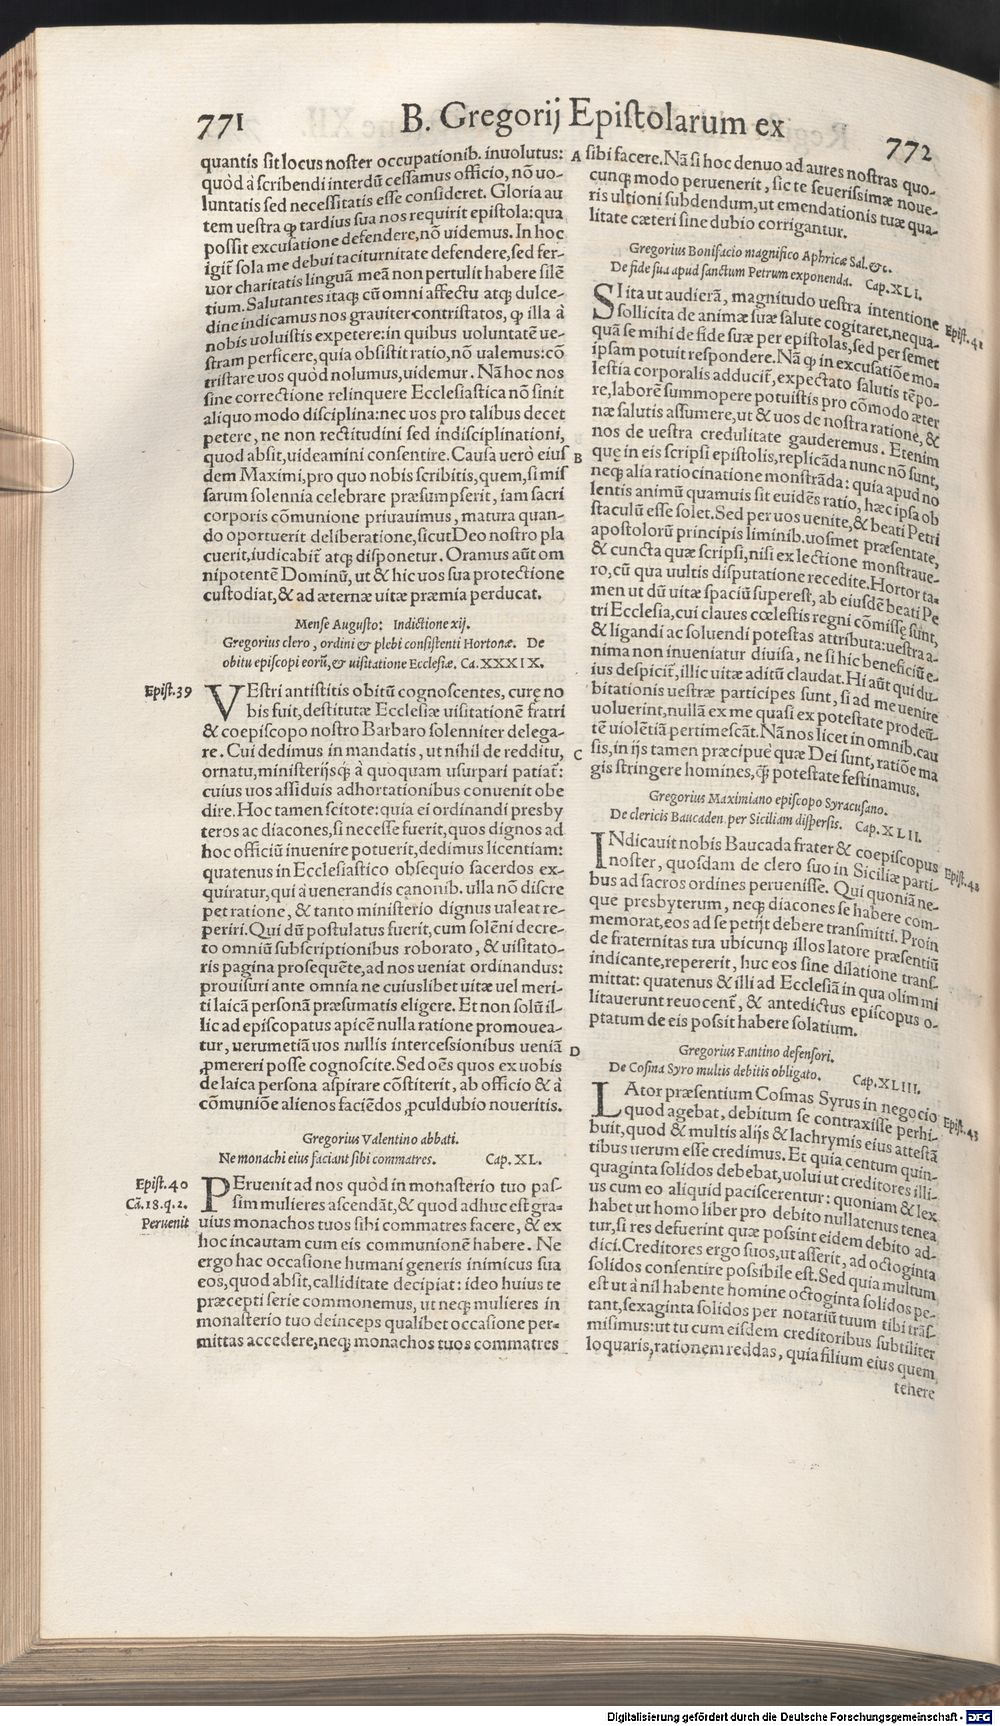 771
B. Gregorij Epistolarum ex
772
quantis sit locus noster occupationib. inuolutus:
quòd à scribendi interdũ cessamus officio, nõ uo-
luntatis sed necessitatis esse consideret. Gloria au
tem uestra ꝙ tardius sua nos requirit epistola: qua
possit excusatione defendere, nõ uidemus. In hoc
igit̃ sola me debui taciturnitate defendere, sed fer-
uor charitatis linguã meã non pertulit habere silẽ
tium. Salutantes itaqꝫ cũ omni affectu atqꝫ dulce-
dine indicamus nos grauiter contristatos, ꝙ illa à
nobis uoluistis expetere: in quibus uoluntatẽ ue-
stram perficere, quia obsistit ratio, nõ ualemus: cõ
tristare uos quòd nolumus, uidemur. Nã hoc nos
sine correctione relinquere Ecclesiastica nõ sinit
aliquo modo disciplina: nec uos pro talibus decet
petere, ne non rectitudini sed indisciplinationi,
quod absit, uideamini consentire. Causa uerò eius
dem Maximi, pro quo nobis scribitis, quem, si mis
sarum solennia celebrare præsumpserit, iam sacri
corporis cõmunione priuauimus, matura quan-
do oportuerit deliberatione, sicut Deo nostro pla
cuerit, iudicabit̃ atqꝫ disponetur. Oramus aũt om
nipotentẽ Dominũ, ut & hic uos sua protectione
custodiat, & ad æternæ uitæ præmia perducat.
Mense Augusto: Indictione xij.
Gregorius clero, ordini & plebi consistenti Hortonæ. De
obitu episcopi eorũ, & uisitatione Ecclesiæ. Ca. XXXIX.
Epist. 39
VEstri antistitis obitũ cognoscentes, curę no
bis fuit, destitutæ Ecclesiæ uisitationẽ fratri
& coepiscopo nostro Barbaro solenniter delega-
re. Cui dedimus in mandatis, ut nihil de redditu,
ornatu, ministerijsqꝫ à quoquam usurpari patiat̃:
cuius uos assiduis adhortationibus conuenit obe
dire. Hoc tamen scitote: quia ei ordinandi presby
teros ac diacones, si necesse fuerit, quos dignos ad
hoc officiũ inuenire potuerit, dedimus licentiam:
quatenus in Ecclesiastico obsequio sacerdos ex-
quiratur, qui à uenerandis canonib. ulla nõ discre
pet ratione, & tanto ministerio dignus ualeat re-
periri. Qui dũ postulatus fuerit, cum solẽni decre-
to omniũ subscriptionibus roborato, & uisitato-
ris pagina prosequẽte, ad nos ueniat ordinandus:
prouisuri ante omnia ne cuiuslibet uitæ uel meri-
ti laicã personã præsumatis eligere. Et non solũ il-
lic ad episcopatus apicẽ nulla ratione promouea-
tur, uerumetiã uos nullis intercessionibus ueniã
ꝓmereri posse cognoscite. Sed oẽs quos ex uobis
de laica persona aspirare cõstiterit, ab officio & à
cõmuniõe alienos faciẽdos ꝓculdubio noueritis.
Gregorius Valentino abbati.
Ne monachi eius faciant sibi commatres. Cap. XL.
Epist. 40
Cã. 18. q. 2.
Peruenit
PEruenit ad nos quòd in monasterio tuo pas-
sim mulieres ascendãt, & quod adhuc est gra-
uius monachos tuos sibi commatres facere, & ex
hoc incautam cum eis communionẽ habere. Ne
ergo hac occasione humani generis inimicus sua
eos, quod absit, calliditate decipiat: ideo huius te
præcepti serie commonemus, ut neqꝫ mulieres in
monasterio tuo deinceps qualibet occasione per-
mittas accedere, neqꝫ monachos tuos commatres
A
B
C
D
sibi facere. Nã si hoc denuo ad aures nostras quo-
cunqꝫ modo peruenerit, sic te seuerissimæ noue-
ris ultioni subdendum, ut emendationis tuæ qua-
litate cæteri sine dubio corrigantur.
Gregorius Bonifacio magnifico Aphricæ Sal. &c.
De fide sua apud sanctum Petrum exponenda. Cap. XLI.
Epist. 41
SI ita ut audierã, magnitudo uestra intentione
sollicita de animæ suæ salute cogitaret, nequa-
quã se mihi de fide suæ per epistolas, sed per semet
ipsam potuit respondere. Nã ꝙ in excusatiõe mo-
lestia corporalis adducit̃, expectato salutis tẽpo-
re, laborẽ summopere potuistis pro cõmodo æter
næ salutis assumere, ut & uos de nostra ratione, &
nos de uestra credulitate gauderemus. Etenim
quę in eis scripsi epistolis, replicãda nunc nõ sunt,
neqꝫ alia ratiocinatione monstrãda: quia apud no
lentis animũ quamuis sit euidẽs ratio, hæc ipsa ob
staculũ esse solet. Sed per uos uenite, & beati Petri
apostolorũ principis liminib. uosmet præsentate,
& cuncta quæ scripsi, nisi ex lectione monstraue-
ro, cũ qua uultis disputatione recedite. Hortor ta-
men ut dũ uitæ spaciũ superest, ab eiusdẽ beati Pe
tri Ecclesia, cui claues cœlestis regni cõmissę sunt,
& ligandi ac soluendi potestas attributa: uestra a-
nima non inueniatur diuisa, ne si hic beneficiũ e-
ius despicit̃, illic uitæ aditũ claudat. Hi aũt qui du-
bitationis uestræ participes sunt, si ad me uenire
uoluerint, nullã ex me quasi ex potestate prodeũ-
tẽ uiolẽtiã pertimescãt. Nã nos licet in omnib. cau
sis, in ijs tamen præcipuè quæ Dei sunt, ratiõe ma
gis stringere homines, q̃ꝫ potestate festinamus.
Gregorius Maximiano episcopo Syracusano.
De clericis Baucaden. per Siciliam dispersis. Cap. XLII.
Epist. 42
INdicauit nobis Baucada frater & coepiscopus
noster, quosdam de clero suo in Siciliæ parti-
bus ad sacros ordines peruenisse. Qui quoniã ne-
que presbyterum, neqꝫ diacones se habere com-
memorat, eos ad se petijt debere transmitti. Proin
de fraternitas tua ubicunqꝫ illos latore præsentiũ
indicante, repererit, huc eos sine dilatione trans-
mittat: quatenus & illi ad Ecclesiã in qua olim mi
litauerunt reuocent̃, & antedictus episcopus o-
ptatum de eis possit habere solatium.
Gregorius Fantino defensori.
De Cosma Syro multis debitis obligato. Cap. XLIII.
Epist. 43
LAtor præsentium Cosmas Syrus in negocio
quod agebat, debitum se contraxisse perhi-
buit, quod & multis alijs & lachrymis eius attestã
tibus uerum esse credimus. Et quia centum quin-
quaginta solidos debebat, uolui ut creditores illi-
us cum eo aliquid paciscerentur: quoniam & lex
habet ut homo liber pro debito nullatenus tenea
tur, si res defuerint quæ possint eidem debito ad-
dici. Creditores ergo suos, ut asserit, ad octoginta
solidos consentire possibile est. Sed quia multum
est ut à nil habente homine octoginta solidos pe-
tant, sexaginta solidos per notariũ tuum tibi trãs-
misimus: ut tu cum eisdem creditoribus subtiliter
loquaris, rationem reddas, quia filium eius quem
tehere
Digitalisierung gefördert durch die Deutsche Forschungsgemeinschaft - DFG